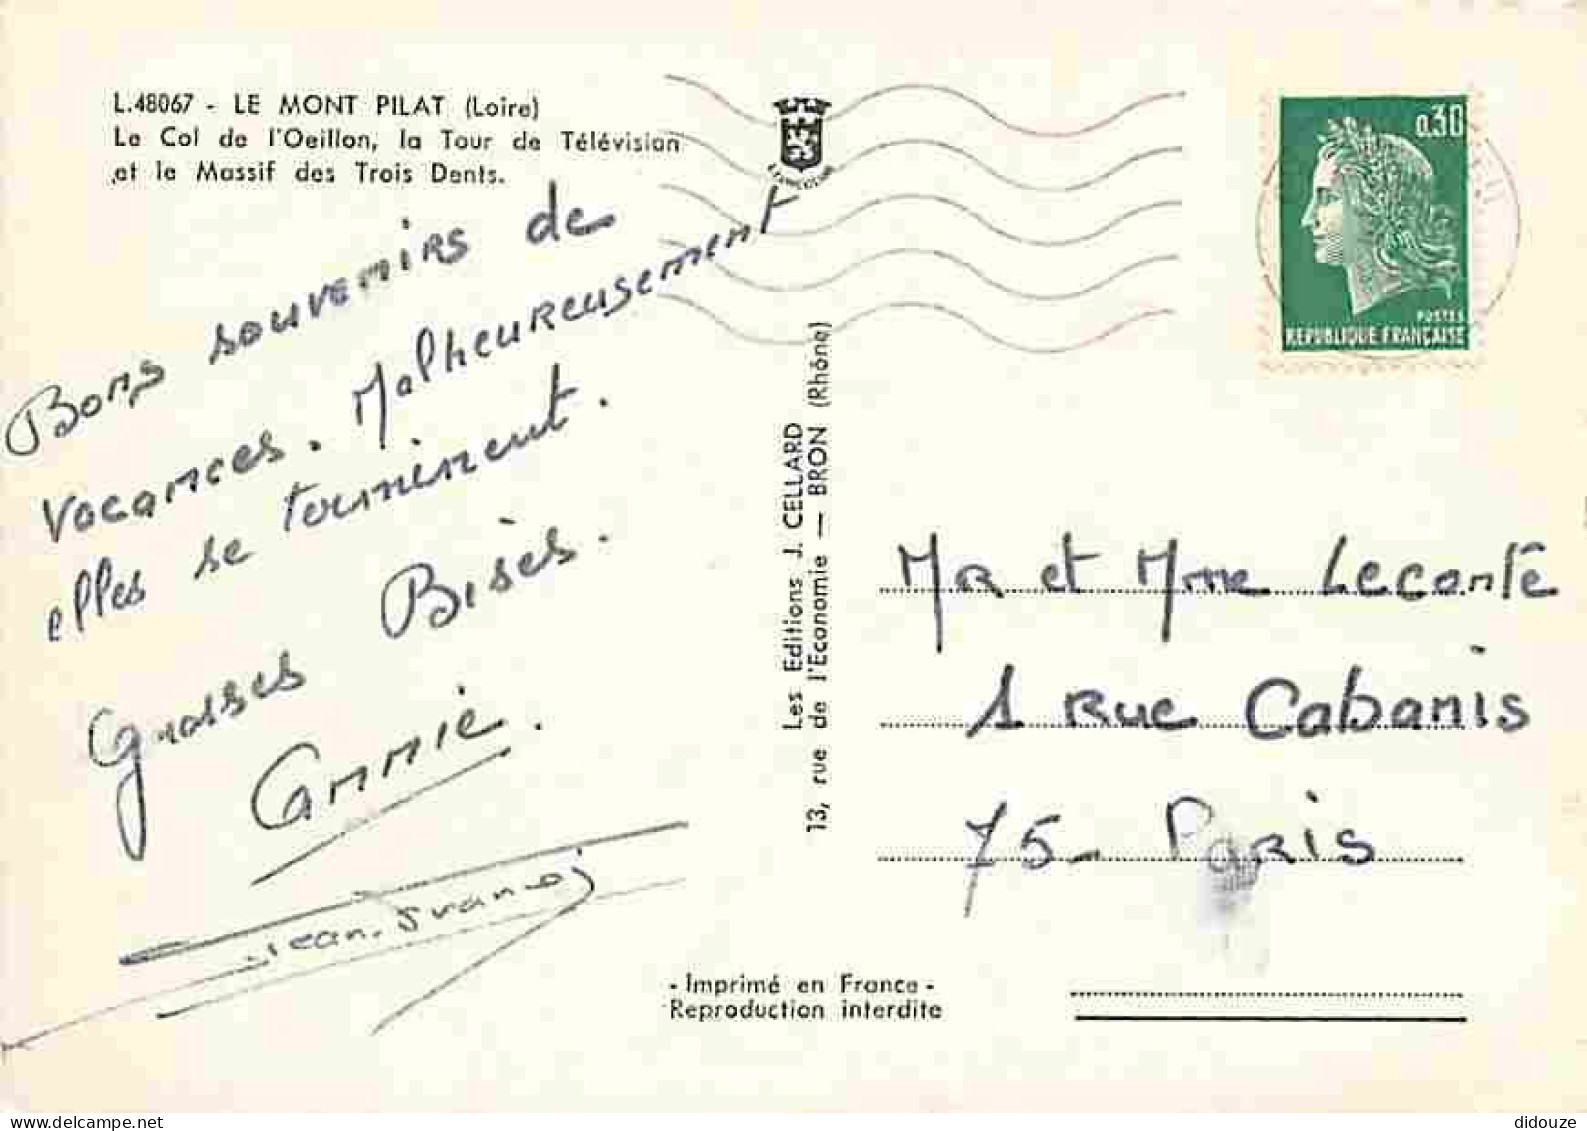 L.48067 - LE MONT PILAT (Loire)
Le Col de l'Oeillon, la Tour de Télévision
et le Massif des Trois Dents.
Bons souvenirs de
vacances. Malheureusement
elles se terminent.
Grosses Bises.
Annie.
Jean-Franços
Les Editions J. CELLARD
13, rue de l'Economie — BRON (Rhône)
- Imprimé en France -
Reproduction interdite
0,30
POSTES
REPUBLIQUE FRANÇAISE
Mr et Mme Leconte
1 Rue Cabanis
75 - Paris
didouze